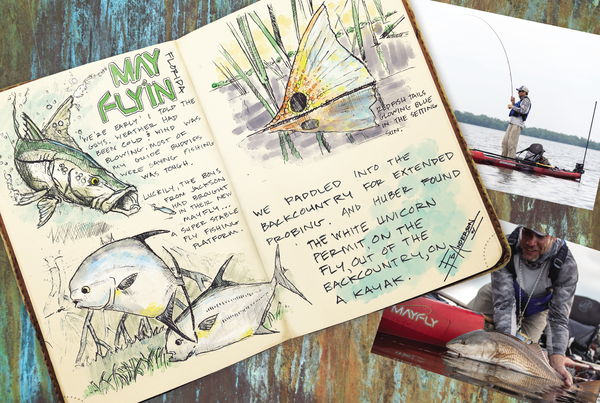 MAY
FLY'IN
FLORIDA
"WE'RE EARLY. I TOLD THE
GUYS. WEATHER HAD
BEEN COLD & WIND WAS
BLOWING. MOST OF
MY GUIDE BUDDIES
WERE SAYING FISHING
WAS TOUGH.
LUCKILY, THE BOYS
FROM JACKSON
HAD BROUGHT
IN THEIR NEW
MAYFLY...
A SUPER STABLE
FLY FISHING
PLATFORM.
REDFISH TAILS
GLOWING BLUE
IN THE SETTING
SUN.
WE PADDLED INTO THE
BACKCOUNTRY FOR EXTENDED
PROBING. AND HUBER FOUND
THE WHITE UNICORN
PERMIT, ON THE
FLY, OUT OF THE
BACKCOUNTRY, ON
A KAYAK.
MAYFLY